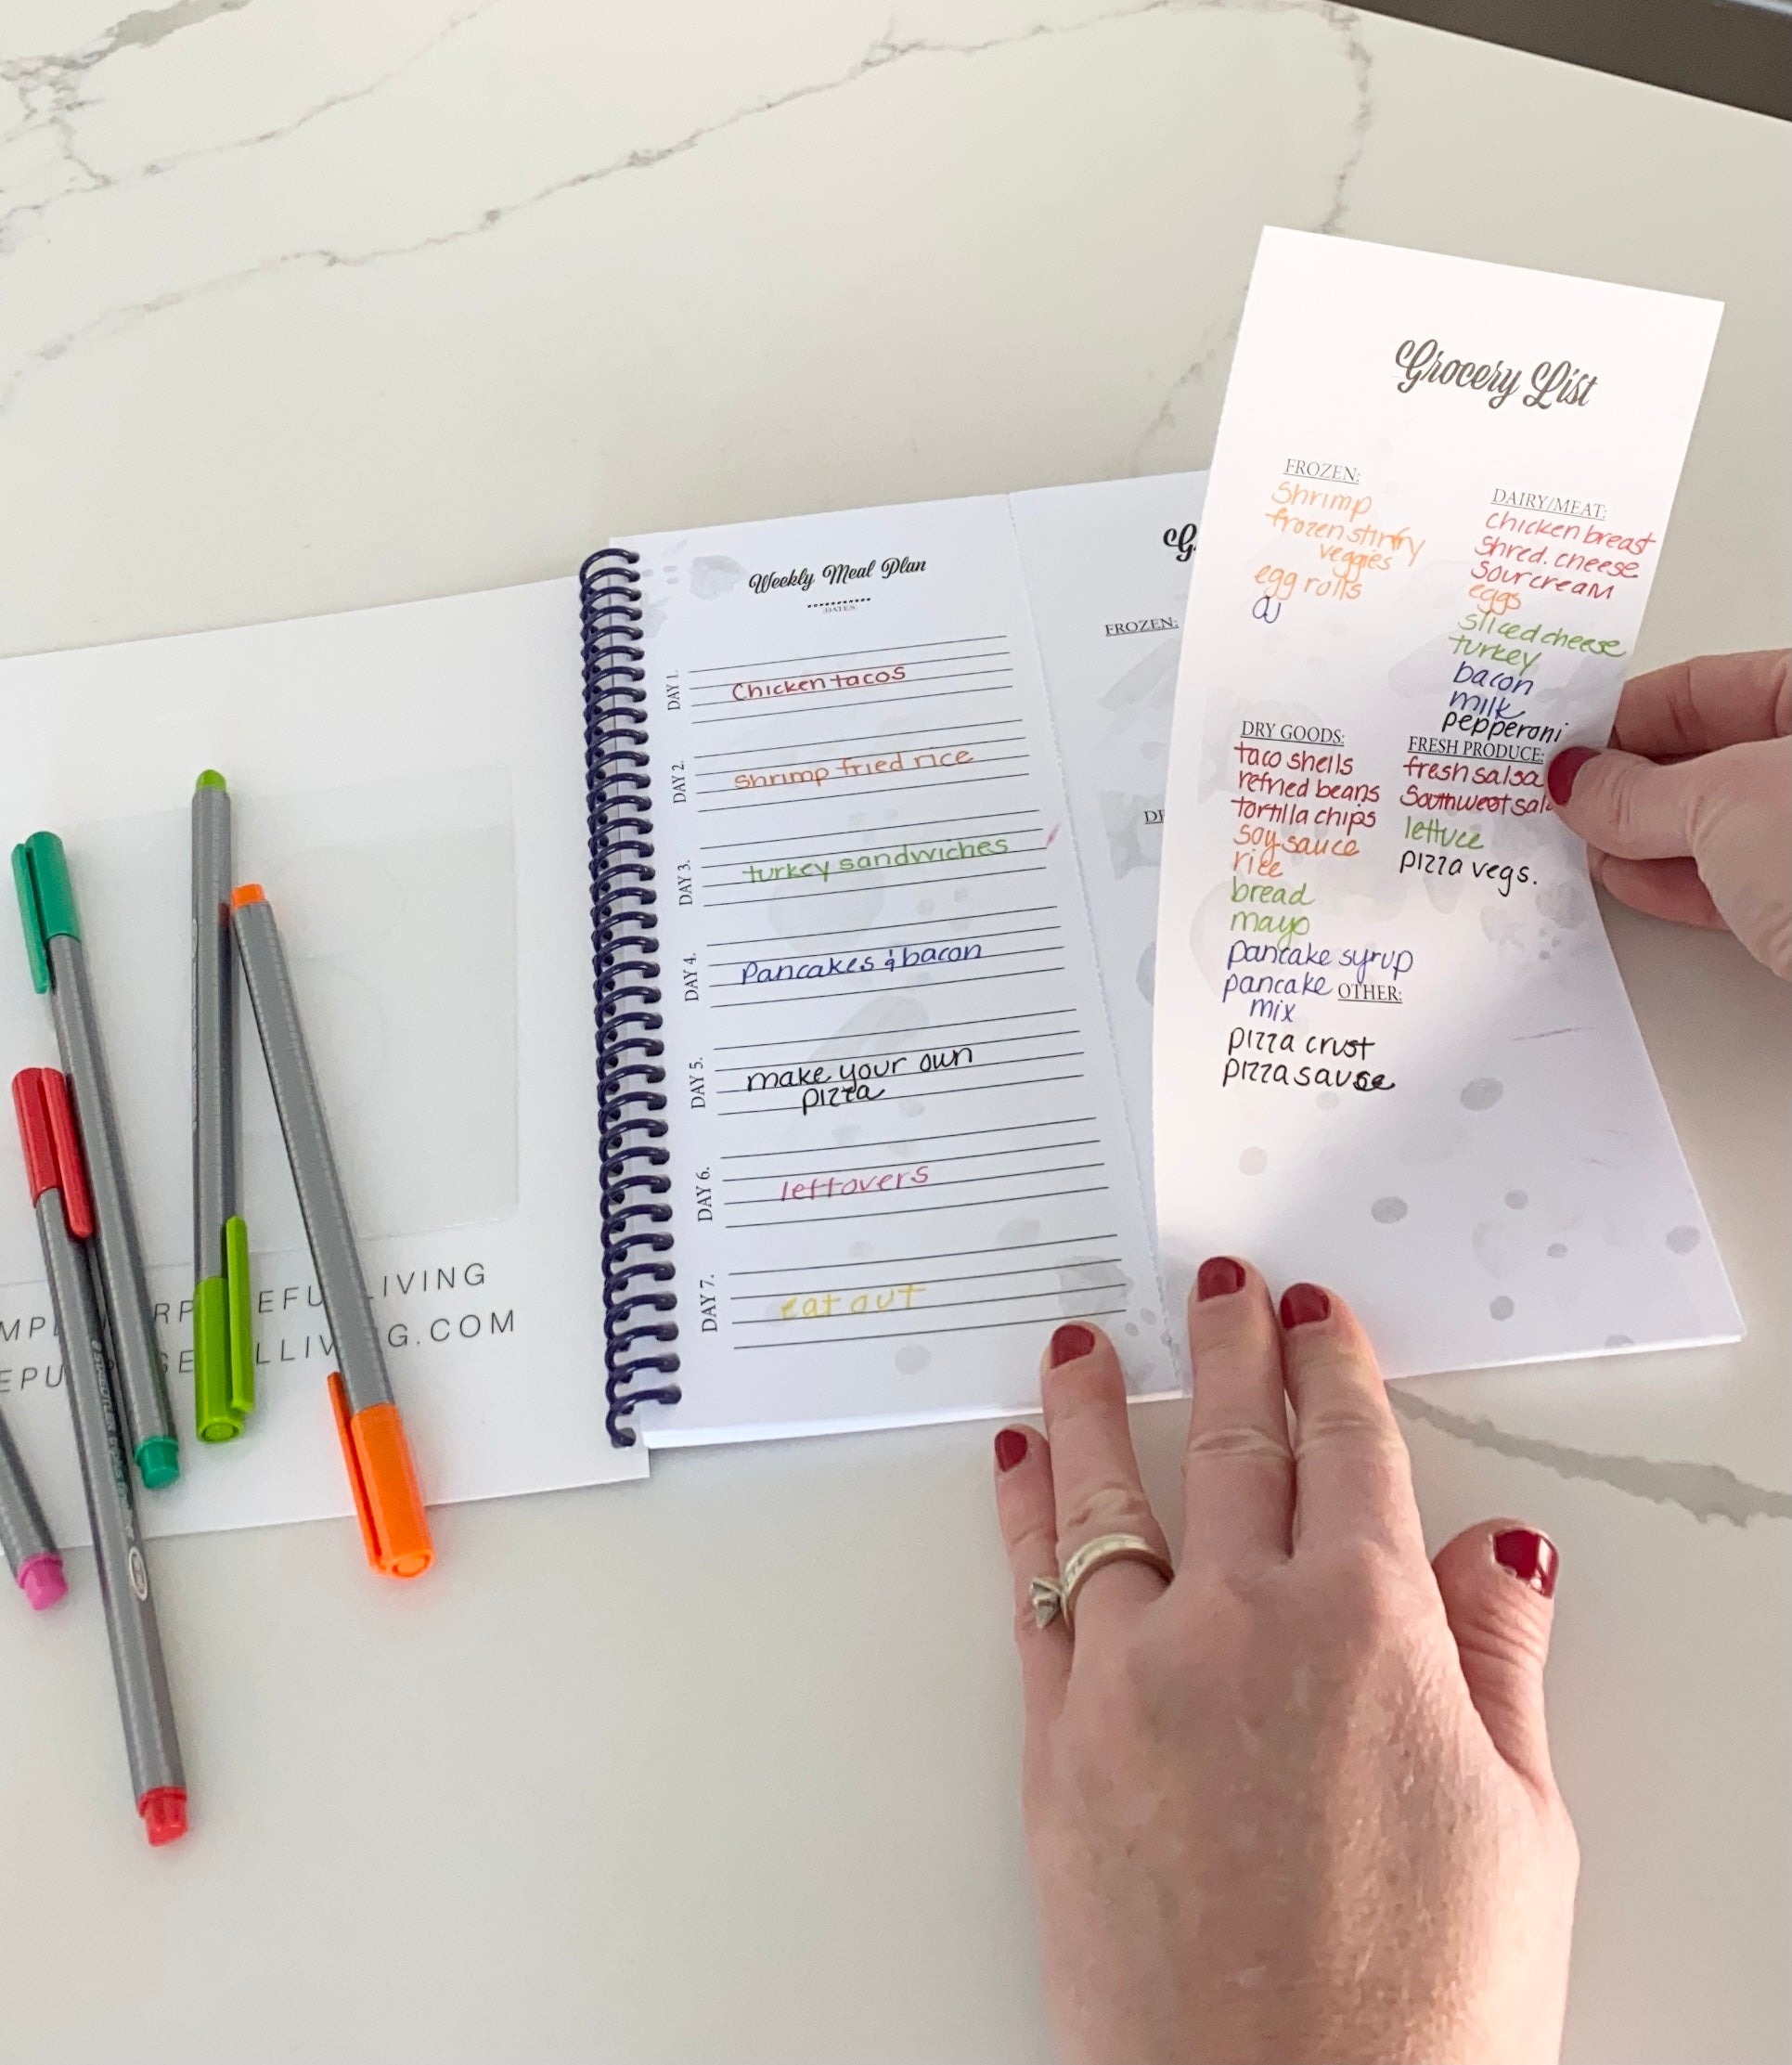 Weekly Meal Plan
DATES
DAY 1.
Chicken tacos
DAY 2.
shrimp fried rice
DAY 3.
turkey sandwiches
DAY 4.
Pancakes & bacon
DAY 5.
make your own
pizza
DAY 6.
leftovers
DAY 7.
eat out
FROZEN:
Grocery List
FROZEN:
Shrimp
frozen stirfry
veggies
egg rolls
OJ
DAIRY/MEAT:
chicken breast
shred. cheese
sour cream
eggs
sliced cheese
turkey
bacon
milk
pepperoni
DRY GOODS:
taco shells
refried beans
tortilla chips
soy sauce
rice
bread
mayo
pancake syrup
pancake
mix
pizza crust
pizza sause
FRESH PRODUCE:
fresh salsa
Southwest
lettuce
pizza vegs.
OTHER:
LIVING
.COM